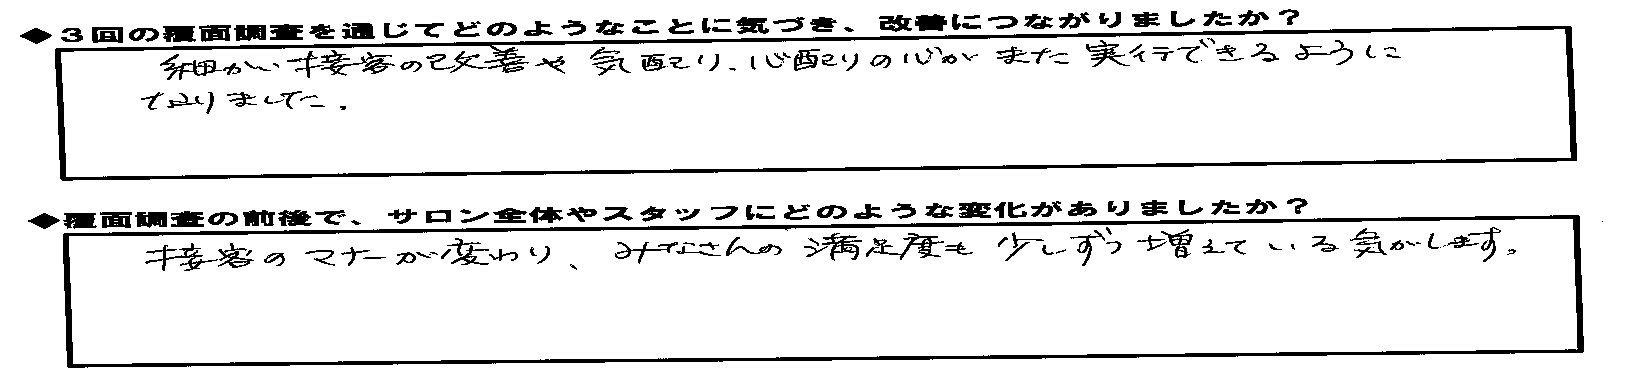 ◆３回の覆面調査を通じてどのようなことに気づき、改善につながりましたか？
細かい接客の改善や気配り、心配りの心がまた実行できるように
なりました。
◆覆面調査の前後で、サロン全体やスタッフにどのような変化がありましたか？
接客のマナーが変わり、みなさんの満足度も少しずつ増えている気がします。